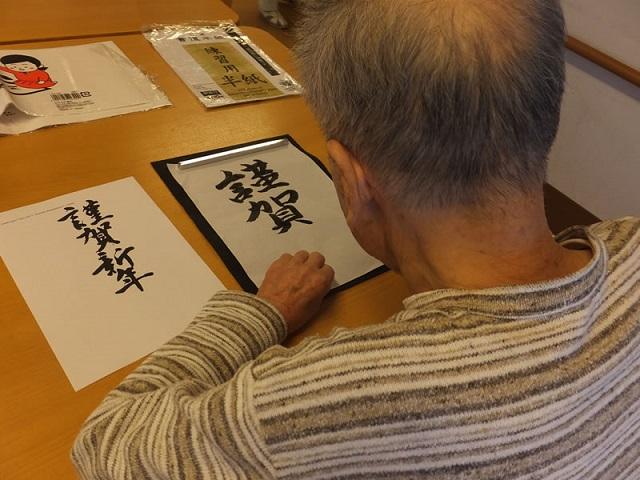 練習用
半紙
謹賀
謹賀新年